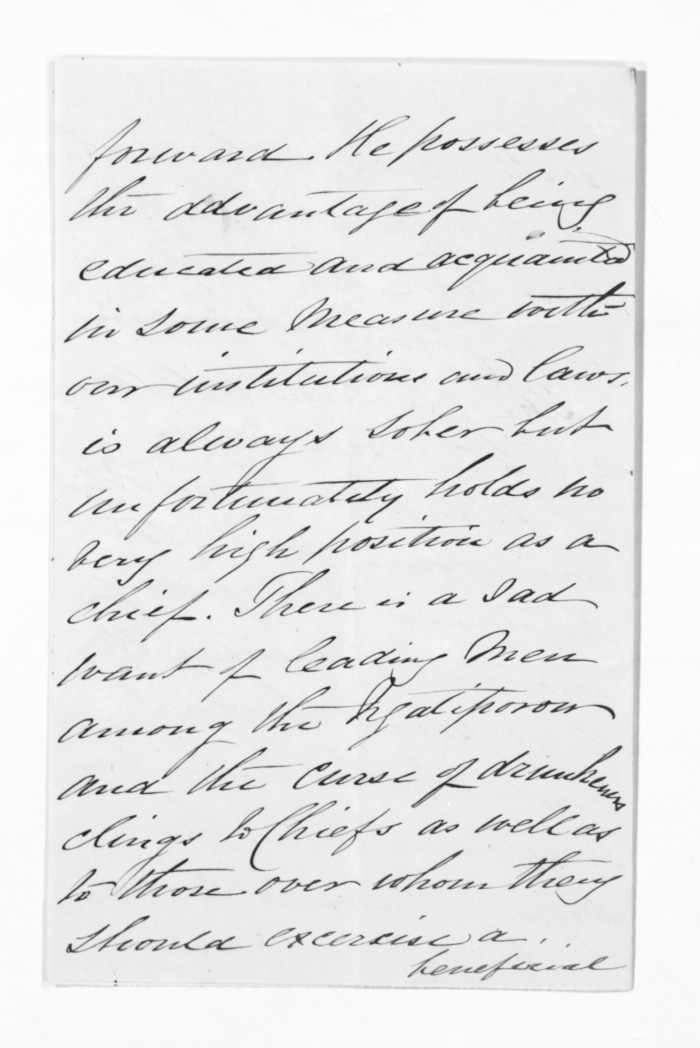 forward He possesses
the advantage of being
educated and acquainted
in some measure with
our institutions and laws,
is always sober but
unfortunately holds no
very high position as a
chief. There is a sad
want of leading Men
among the Ngatiporou
and the curse of drunkeness
clings to Chiefs as well as
to those over whom they
should excercise a
beneficial